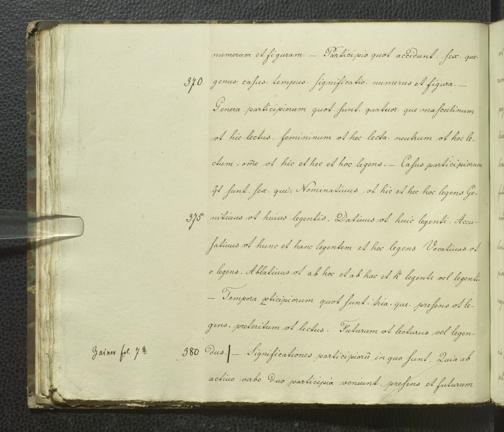 numerum et figuram. — Participio quot accidunt. sex. que.
370 genus. casus. tempus. significatio. numerus et figura. —
Genera participiorum quot sunt. quatuor. que masculinum
ut hic lectus. femininum ut hec lecta. neutrum ut hoc le-
ctum. ome ut hic et hec et hoc legens. — Casus participiorum
qt sunt. sex. qui. Nominativus. ut hic et hec hoc legens Ge-
375 nitivus ut huius legentis. Dativus ut huic legenti. Accu-
sativus ut hunc et hanc legentem et hoc legens Vocativus ut
o legens. Ablativus ut ab hoc et ab hac et h legente vel legenti.
— Tempora pticipiorum quot sunt. tria. que. presens ut le-
gens. preteritum ut lectus. Futurum ut lecturus vel legen-
Zainer fol. 7 380 dus. | — Significationes participiorũ in quo sunt. Quia ab
activo verbo duo participia veniunt. presens et futurum